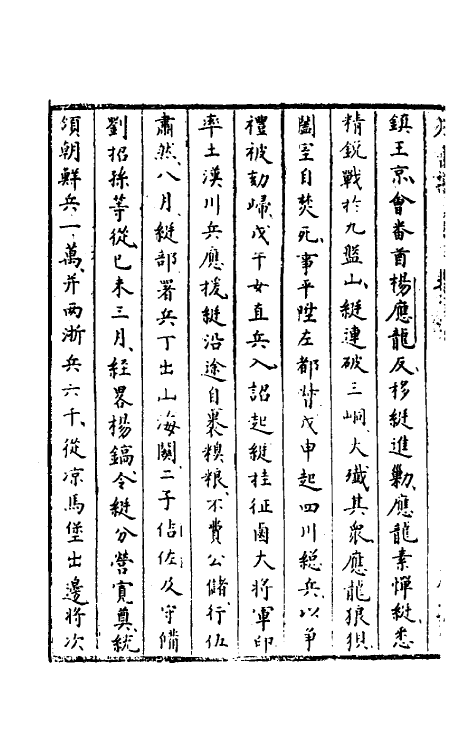 鎮王京會畨酋楊應龍反移綎進勦應龍素憚綎悉
精銳戰扵九盤山綎連破三峒大殲其衆應龍狼狽
闔室自焚死事平陞左都督戊申起四川緫兵以爭
禮被劾歸戊午女直兵入詔起綎挂征鹵大將軍印
率土漢川兵應援綎沿途自褁糗粮不費公儲行伍
肅然八月綎部署兵丁出山海關二子佔佐及守俻
劉招孫等從已未三月經畧楊鎬令綎分营寛奠統
領朝鮮兵一萬并兩浙兵六千從凉馬堡出邊將次